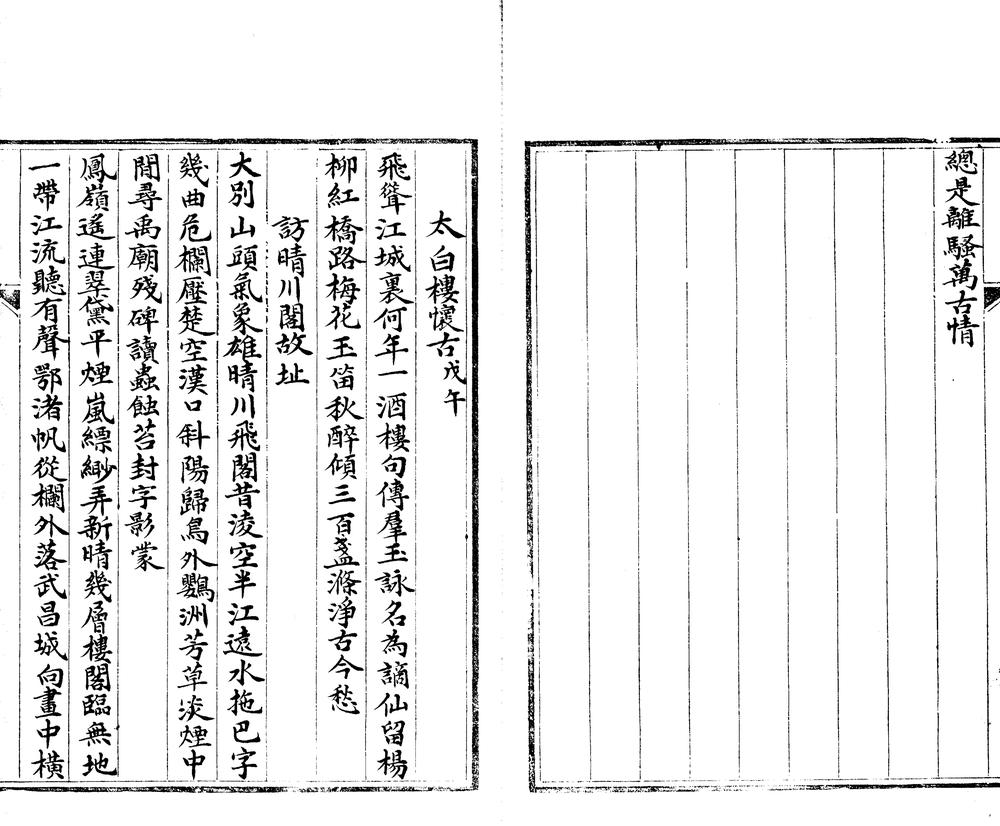 總是離騷萬古情
太白樓懷古戊午
飛聳江城裏何年一酒樓句傳羣玉詠名為謫仙留楊
柳紅橋路梅花玉笛秋醉傾三百盞滌淨古今愁
訪晴川閣故址
大別山頭氣象雄晴川飛閣昔淩空半江遠水拖巴字
幾曲危欄壓楚空漢口斜陽歸鳥外鸚洲芳草淡煙中
閒尋禹廟殘碑讀蟲蝕苔封字影濛
鳳嶺遙連翠黛平煙嵐縹緲弄新晴幾層樓閣臨無地
一帶江流聽有聲鄂渚帆從欄外落武昌城向畫中橫